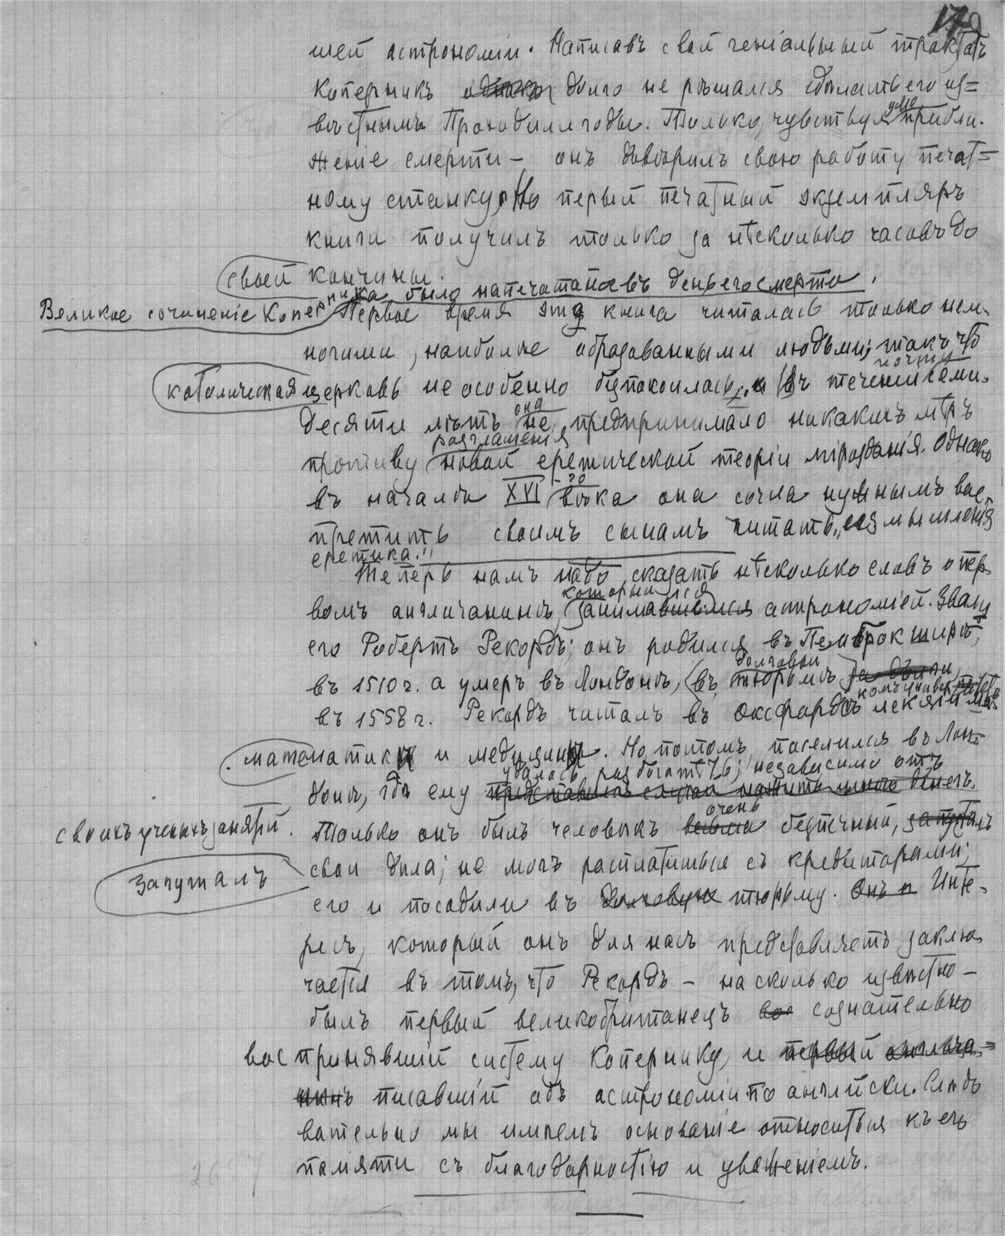 17
шей астрономіи. Написавъ свой геніальный трактатъ
Коперникъ однако долго не рѣшался сдѣлать его из=
вѣстнымъ. Проходили годы. Только, чувствуя уже прибли-
женіе смерти – онъ довѣрилъ свою работу печат=
ному станку, Но первый печатный экземпляръ
книги получилъ только за нѣсколько часовъ до
своей кончины.
Великое сочиненіе Коперника было напечатано въ день его смерти.
Первое время эта книга читалась только нем-
ногими, наиболѣе образованными людьми, такъ что
католическая церковь не особенно безпокоилась, и въ теченіи почти семи-
десяти лѣтъ она не предпринимало никакихъ мѣръ
противу разглашенія новой еретической теоріи мірозданія. Однако
въ началѣ XVI-го вѣка она сочла нужнымъ вос
претить своимъ сынамъ читать „измышленія
еретика."
Теперь намъ надо сказать нѣсколько словъ о пер-
вомъ англичанинѣ, который занимавшемся астрономіей. Звали
его Робертъ Рекордъ; онъ родился въ Пемброкширѣ,
въ 1510 г. а умеръ въ Лондонѣ, (въ долговой тюрьмѣ) за долги,
въ 1558 г. Рекордъ читалъ въ Оксфордѣ лекціи
математики и медицины. Но потомъ поселился въ Лон=
донѣ, гдѣ ему удалось разбогатѣть, независимо отъ
своихъ ученыхъ занятій.
представился случай нажить много денегъ.
Только онъ былъ человѣкъ весьма очень безпечный, запуталъ
Запуталъ
свои дѣла; не могъ расплатиться съ кредиторами;
его и посадили въ долговую тюрьму. Онъ и Инте-
ресъ, который онъ для насъ представляетъ заклю-
чается въ томъ, что Рекордъ – на сколько извѣстно –
былъ первый великобританецъ вос сознательно
воспринявшій систему Коперника, и первый англича=
нинъ писавшій объ астрономіи по англійски. Слѣдо
вательно мы имѣемъ основаніе относиться къ его
памяти съ благодарностію и уваженіемъ.